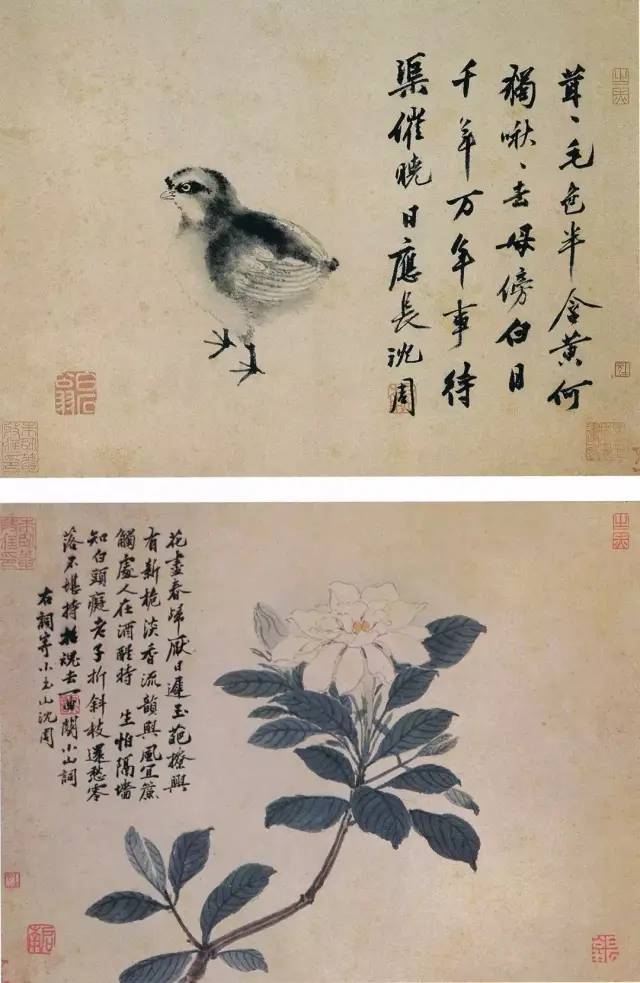 茸、毛色半含黄何
獨啾、去母傍白日
千年万年事待
渠催曉日應長沈周
花盡春歸厭日遲玉葩撩興
有新梔淡香流韻與風宜簾
觸處人在酒醒時 生怕隔墻
知白頭癡老子折斜枝還愁零
落不堪持招魂去一曲關小山詞
右詞寄小玉山沈周